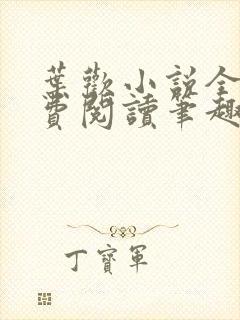 葉歡小説全
費閱讀筆趣
丁寶軍